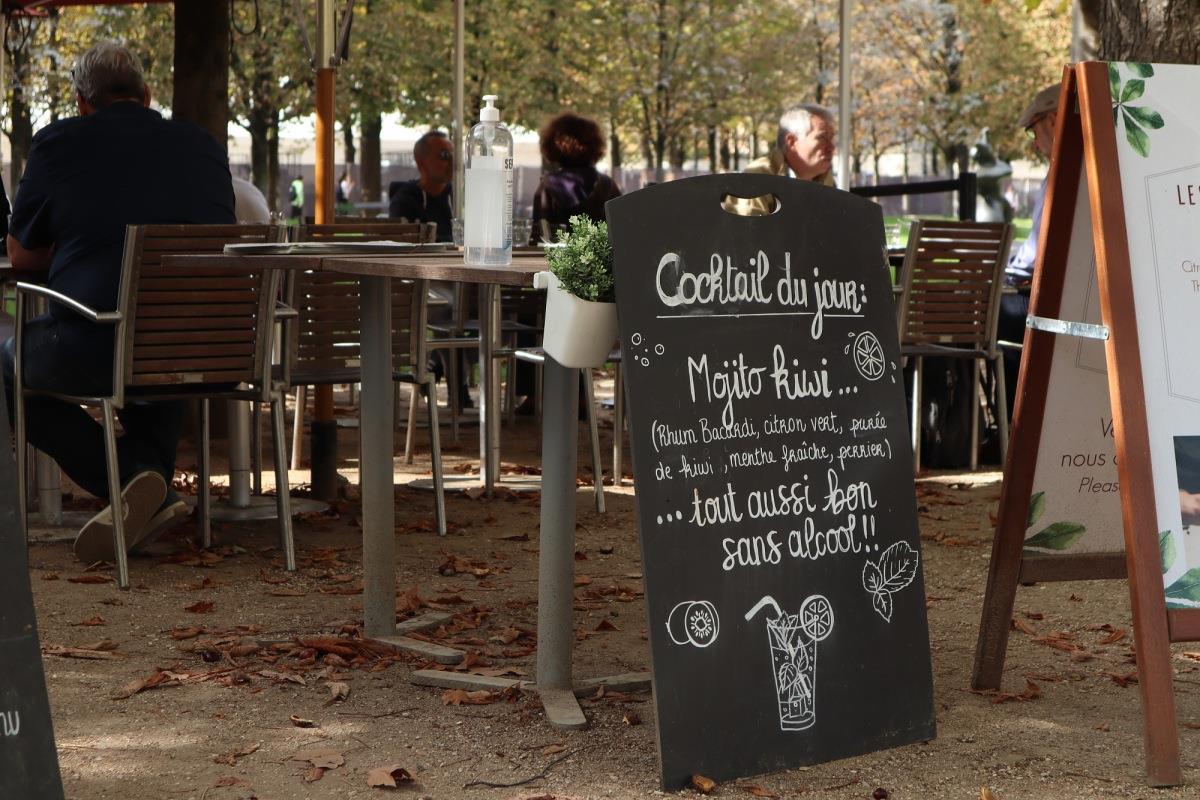 Cocktail du jour:
Mojito kiwi...
(Rhum Bacardi, citron vert, purée
de kiwi, menthe fraîche, perrier)
... tout aussi bon
sans alcool!!
LE
Citr
TH
nous
Pleas